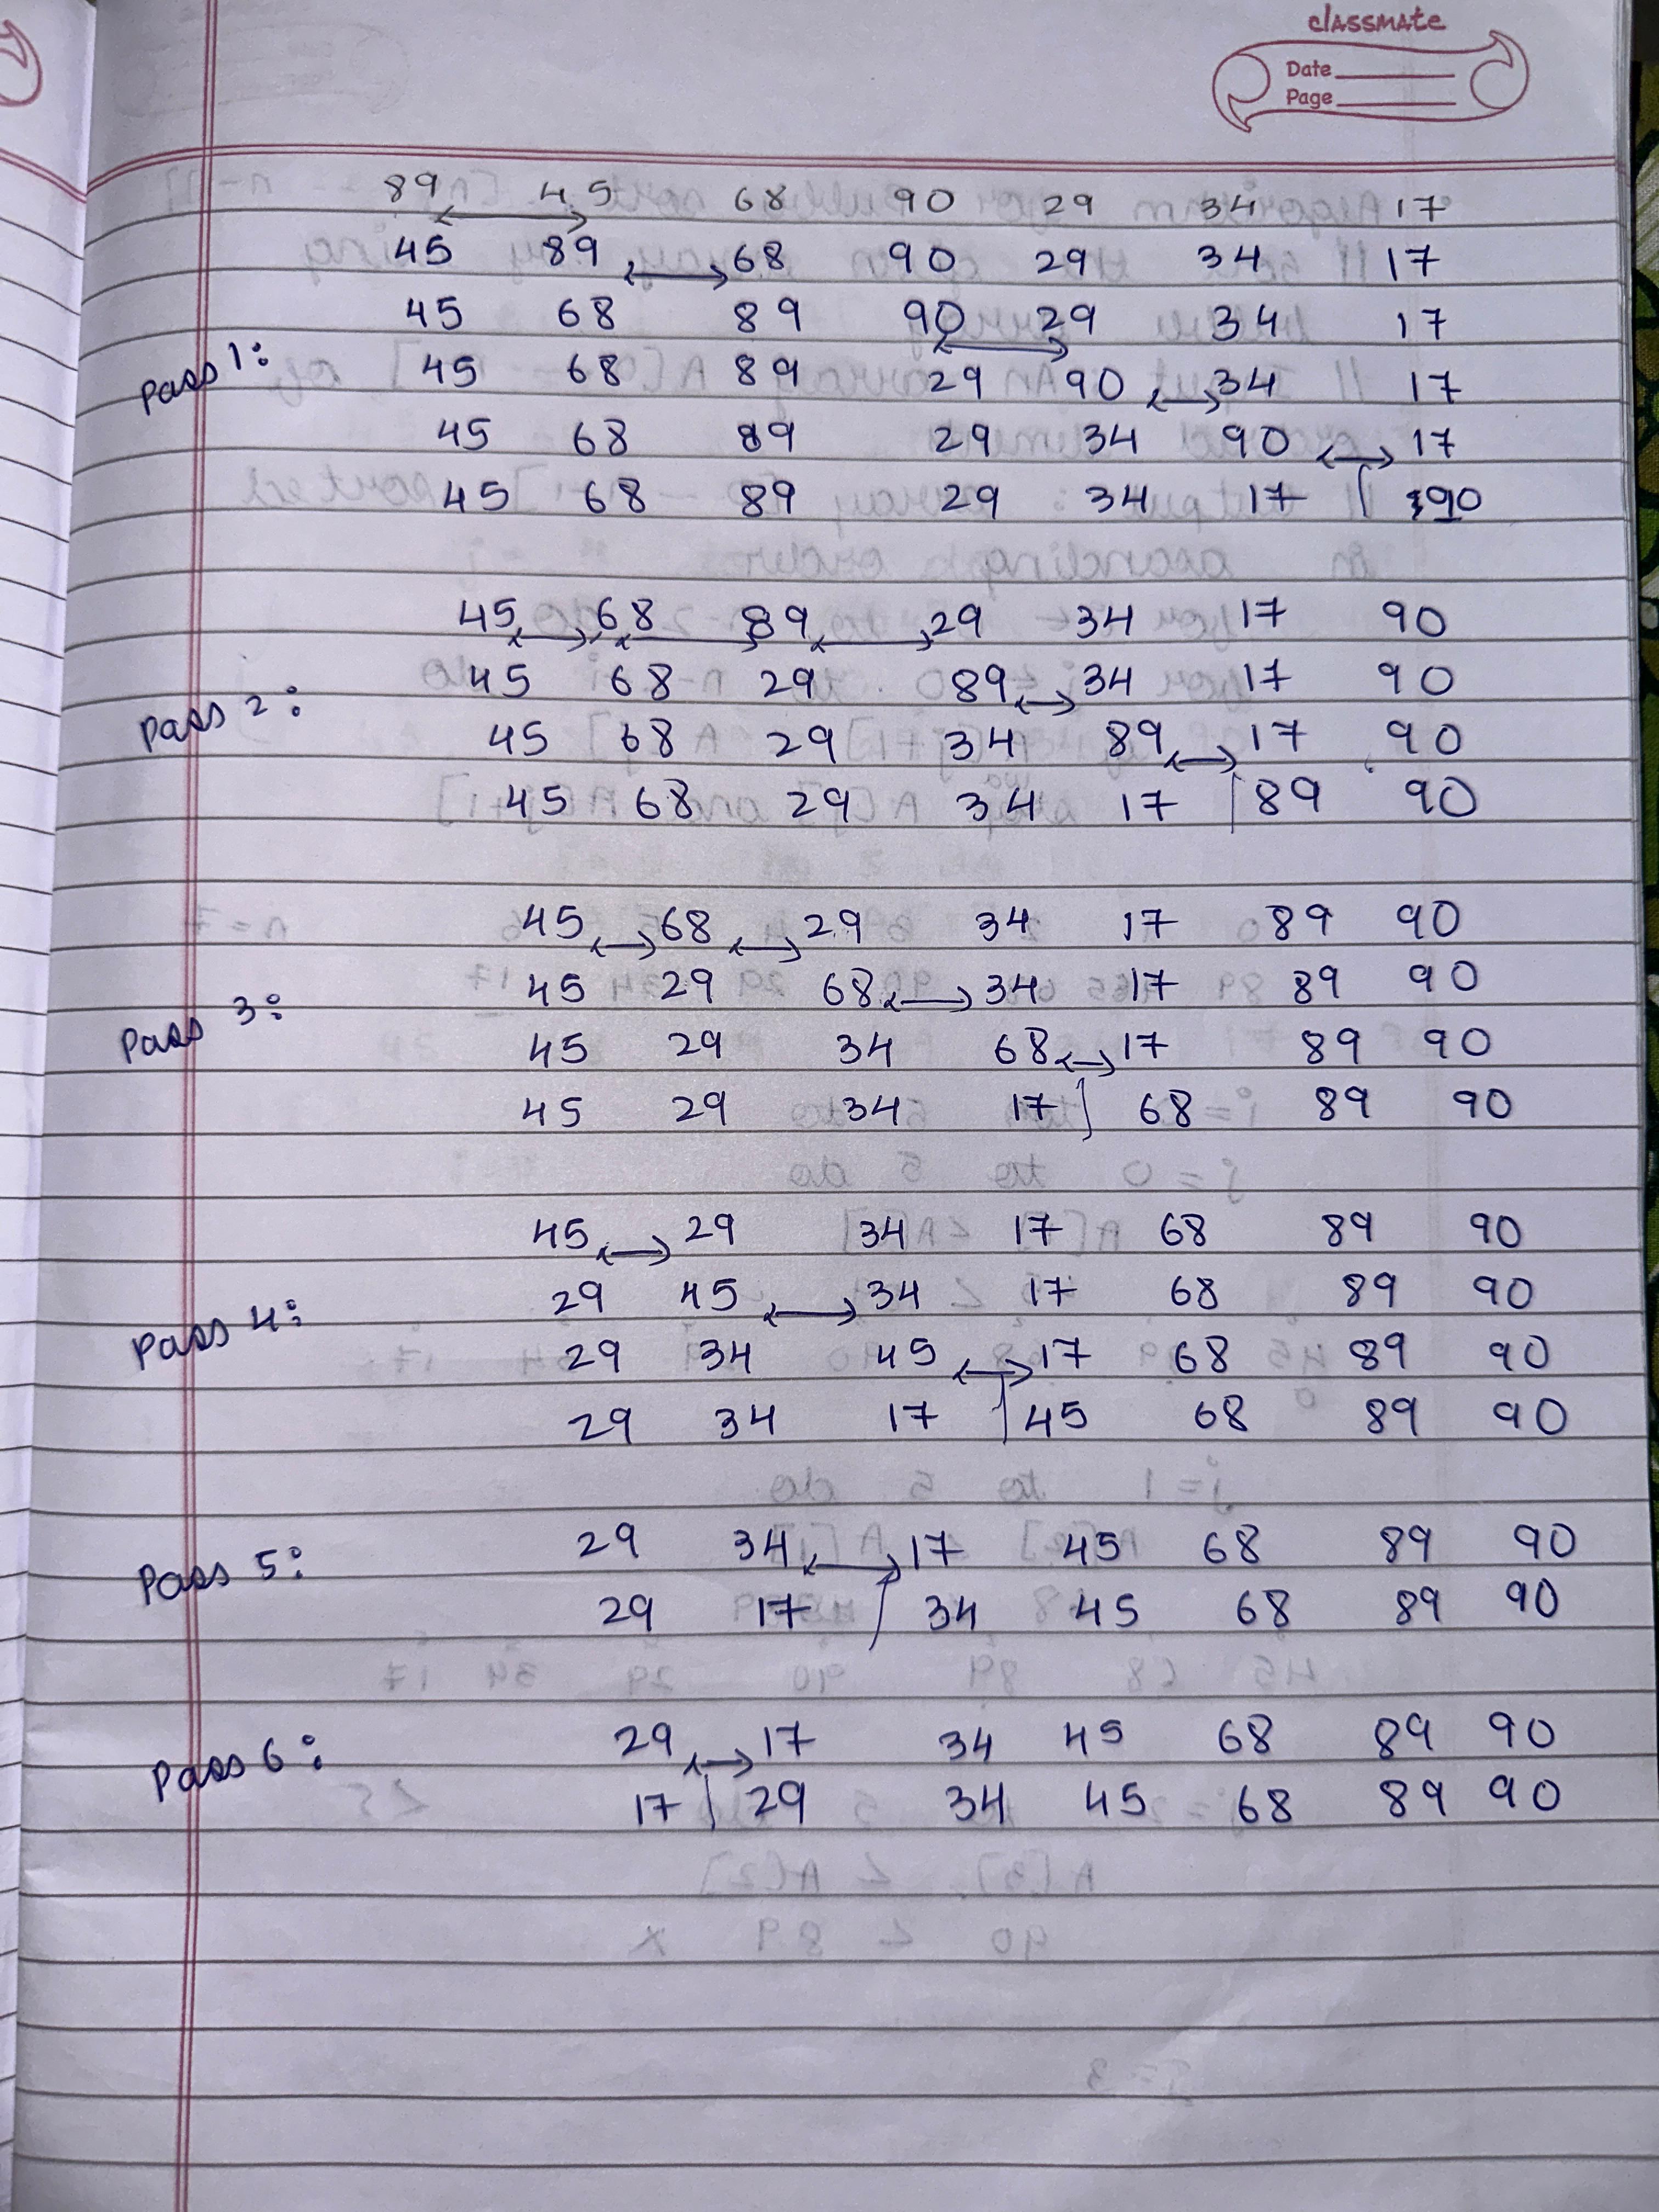 classmate
Date
Page
89 45 68 90 29 34 17
45 89 68 90 29 34 17
45 68 89 90 29 34 17
Pass 1:
45 68 89 29 90 34 17
45 68 89 29 34 90 17
45 68 89 29 34 17 | 90
45 68 89 29 34 17 90
45 68 29 89 34 17 90
Pass 2:
45 68 29 34 89 17 90
45 68 29 34 17 | 89 90
45 68 29 34 17 89 90
45 29 68 34 17 89 90
Pass 3:
45 29 34 68 17 89 90
45 29 34 17 | 68 89 90
45 29 34 17 68 89 90
29 45 34 17 68 89 90
Pass 4:
29 34 45 17 68 89 90
29 34 17 | 45 68 89 90
Pass 5:
29 34 17 45 68 89 90
29 17 | 34 45 68 89 90
Pass 6:
29 17 34 45 68 89 90
17 | 29 34 45 68 89 90